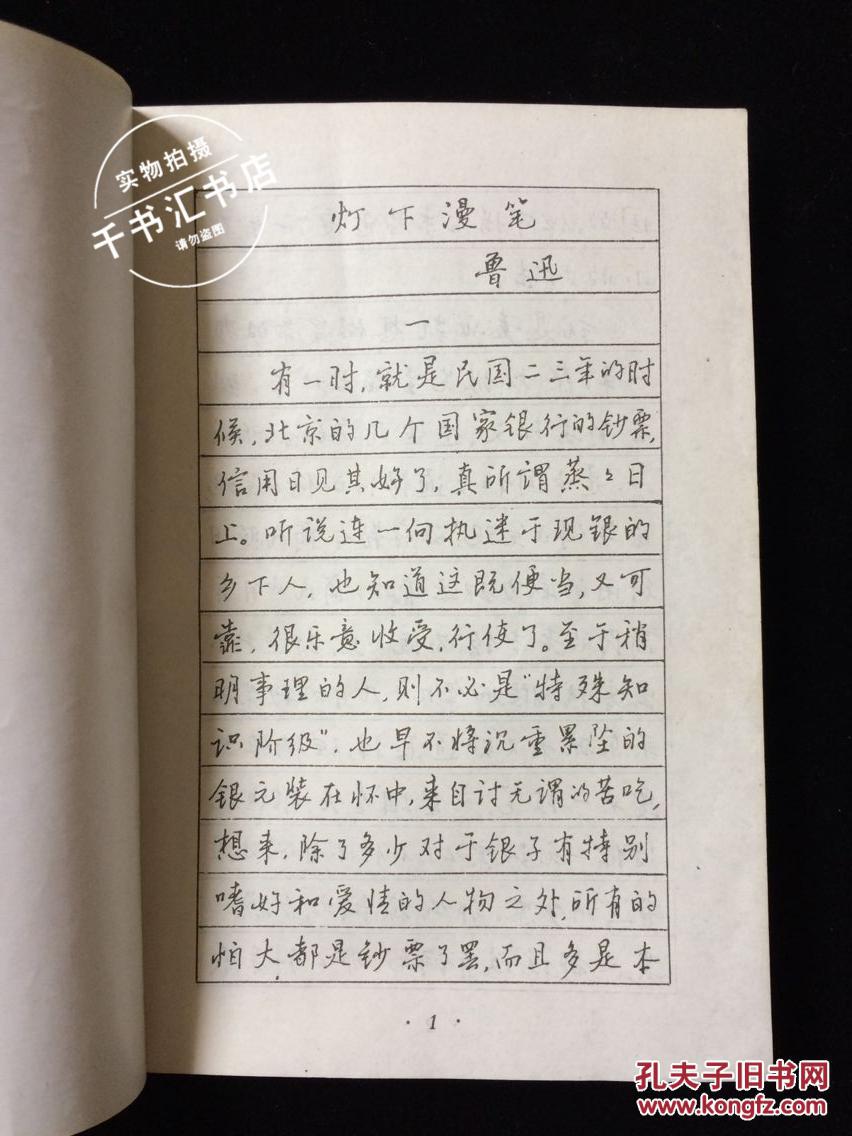 实物拍摄
千书汇书店
请勿盗图
灯下漫笔
鲁迅
一
有一时,就是民国二三年的时
候,北京的几个国家银行的钞票,
信用日见其好了,真所谓蒸々日
上。听说连一向执迷于现银的
乡下人,也知道这既便当,又可
靠,很乐意收受,行使了。至于稍
明事理的人,则不必是“特殊知
识阶级”,也早不将沉重累坠的
银元装在怀中,来自讨无谓的苦吃,
想来,除了多少对于银子有特别
嗜好和爱情的人物之外,所有的
怕大都是钞票了罢,而且多是本
·1·
孔夫子旧书网
www.kongfz.com